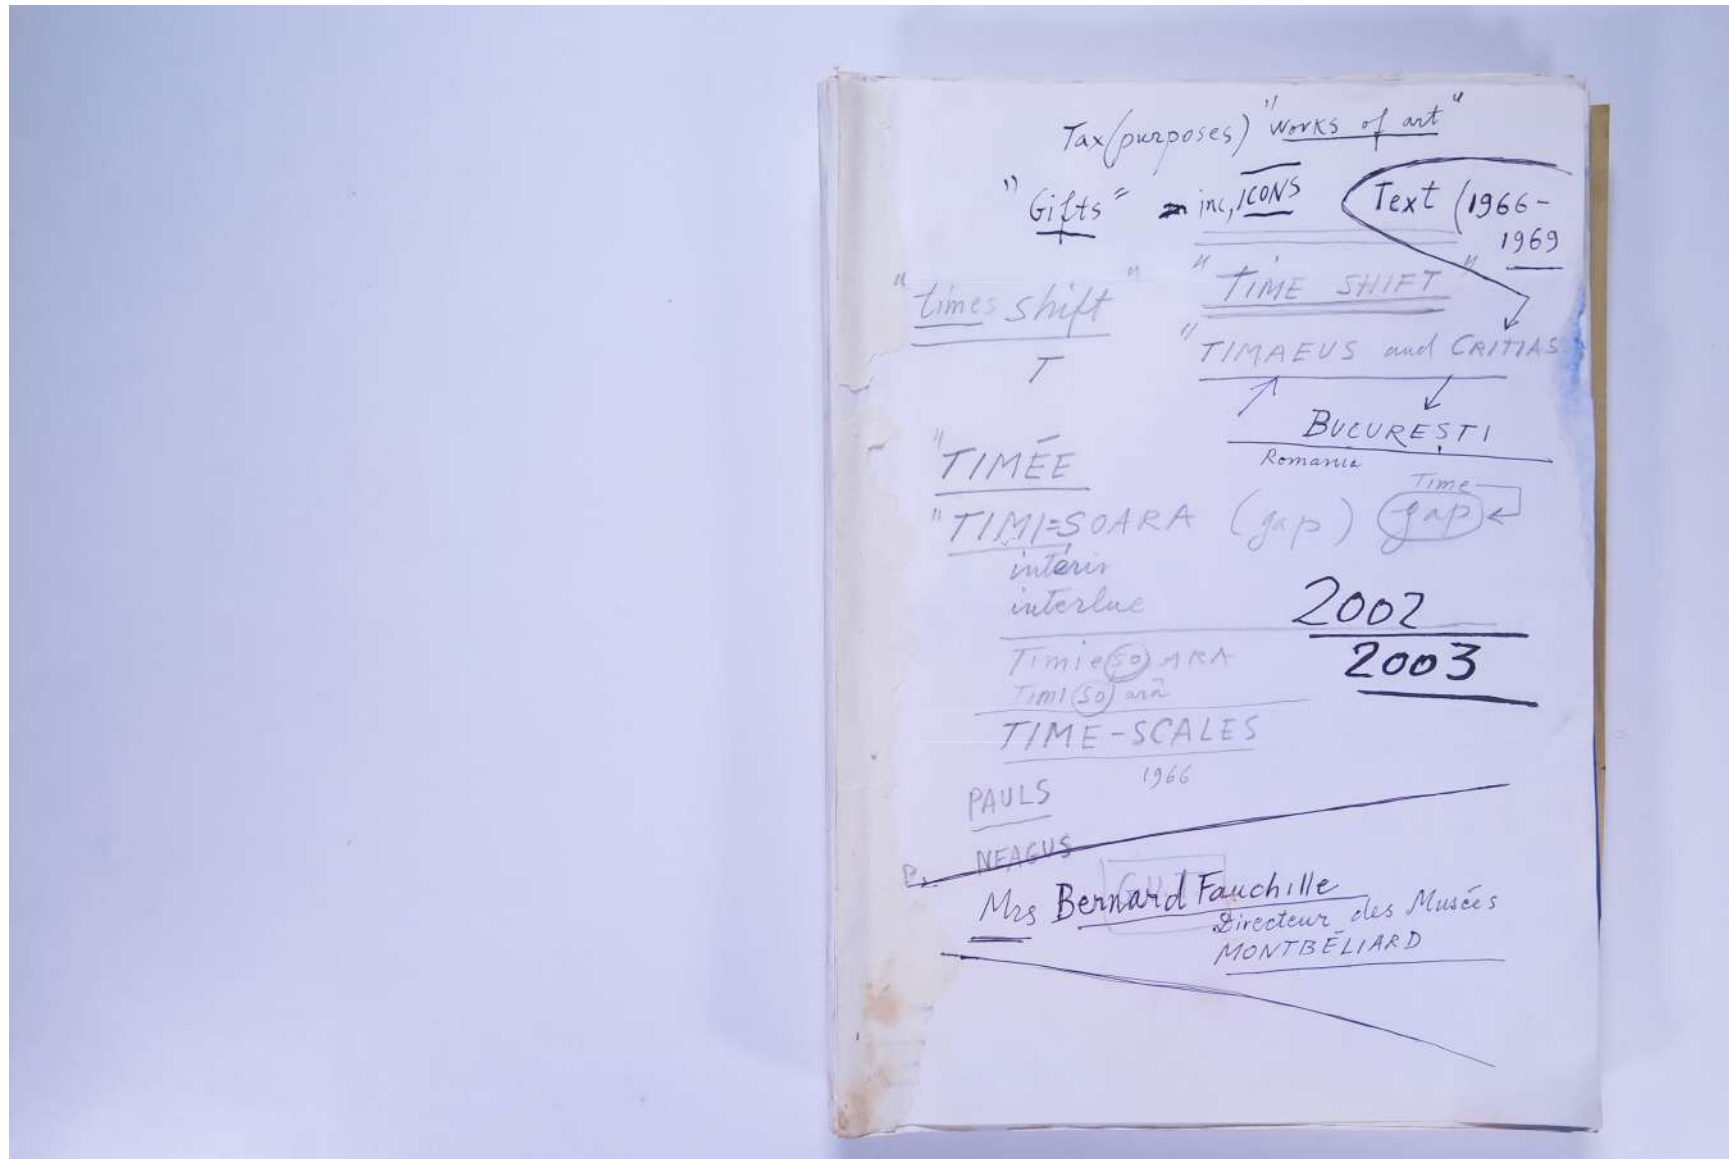 Tax (purposes) "works of art"
"Gifts" inc, ICONS
Text (1966-
1969
"times shift" "TIME SHIFT"
T
"TIMAEUS and CRITIAS
BUCUREȘTI
Romania
"TIMÉE
Time
"TIMI=SOARA (gap) gap
interlac
2002
2003
Timie(so)ARA
Timi(so)ară
TIME-SCALES
1966
PAULS
NEAGUS
P.
Mrs Bernard Fauchille
Directeur des Musées
MONTBÉLIARD